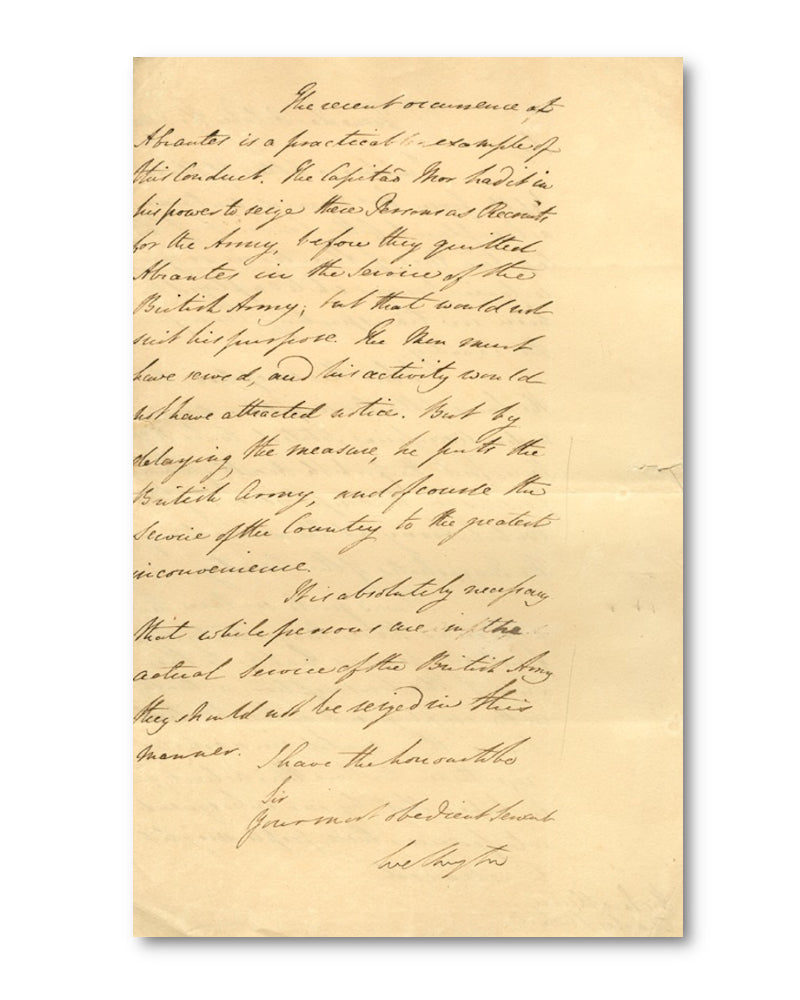 The recent occurrence at
Abrantes is a practical example of
this Conduct. The Capitaõ Mor had it in
his power to seize these Persons as Recruits
for the Army, before they quitted
Abrantes in the Service of the
British Army; but that would not
suit his purpose. The Men must
have served, and his activity would
not have attracted notice. But by
delaying the measure, he puts the
British Army, and of course the
Service of the Country to the greatest
inconvenience.
It is absolutely necessary
that while persons are in the
actual Service of the British Army
they should not be seized in this
manner.
I have the honour to be
Sir
Your most obedient Servant
Wellington